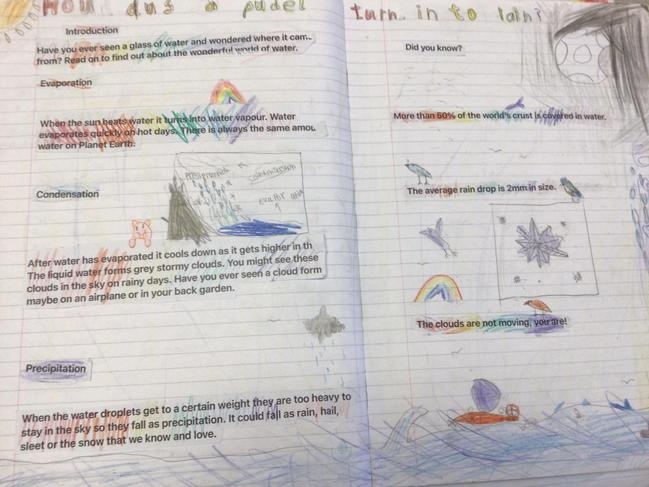 How dus a pudel turn in to rain?
Introduction
Have you ever seen a glass of water and wondered where it cam
from? Read on to find out about the wonderful world of water.
Evaporation
When the sun heats water it turns into water vapour. Water
evaporates quickly on hot days. There is always the same amou
water on Planet Earth.
Condensation
After water has evaporated it cools down as it gets higher in th
The liquid water forms grey stormy clouds. You might see these
clouds in the sky on rainy days. Have you ever seen a cloud form
maybe on an airplane or in your back garden.
Precipitation
When the water droplets get to a certain weight they are too heavy to
stay in the sky so they fall as precipitation. It could fall as rain, hail,
sleet or the snow that we know and love.
Did you know?
More than 50% of the world's crust is covered in water.
The average rain drop is 2mm in size.
The clouds are not moving, you are!